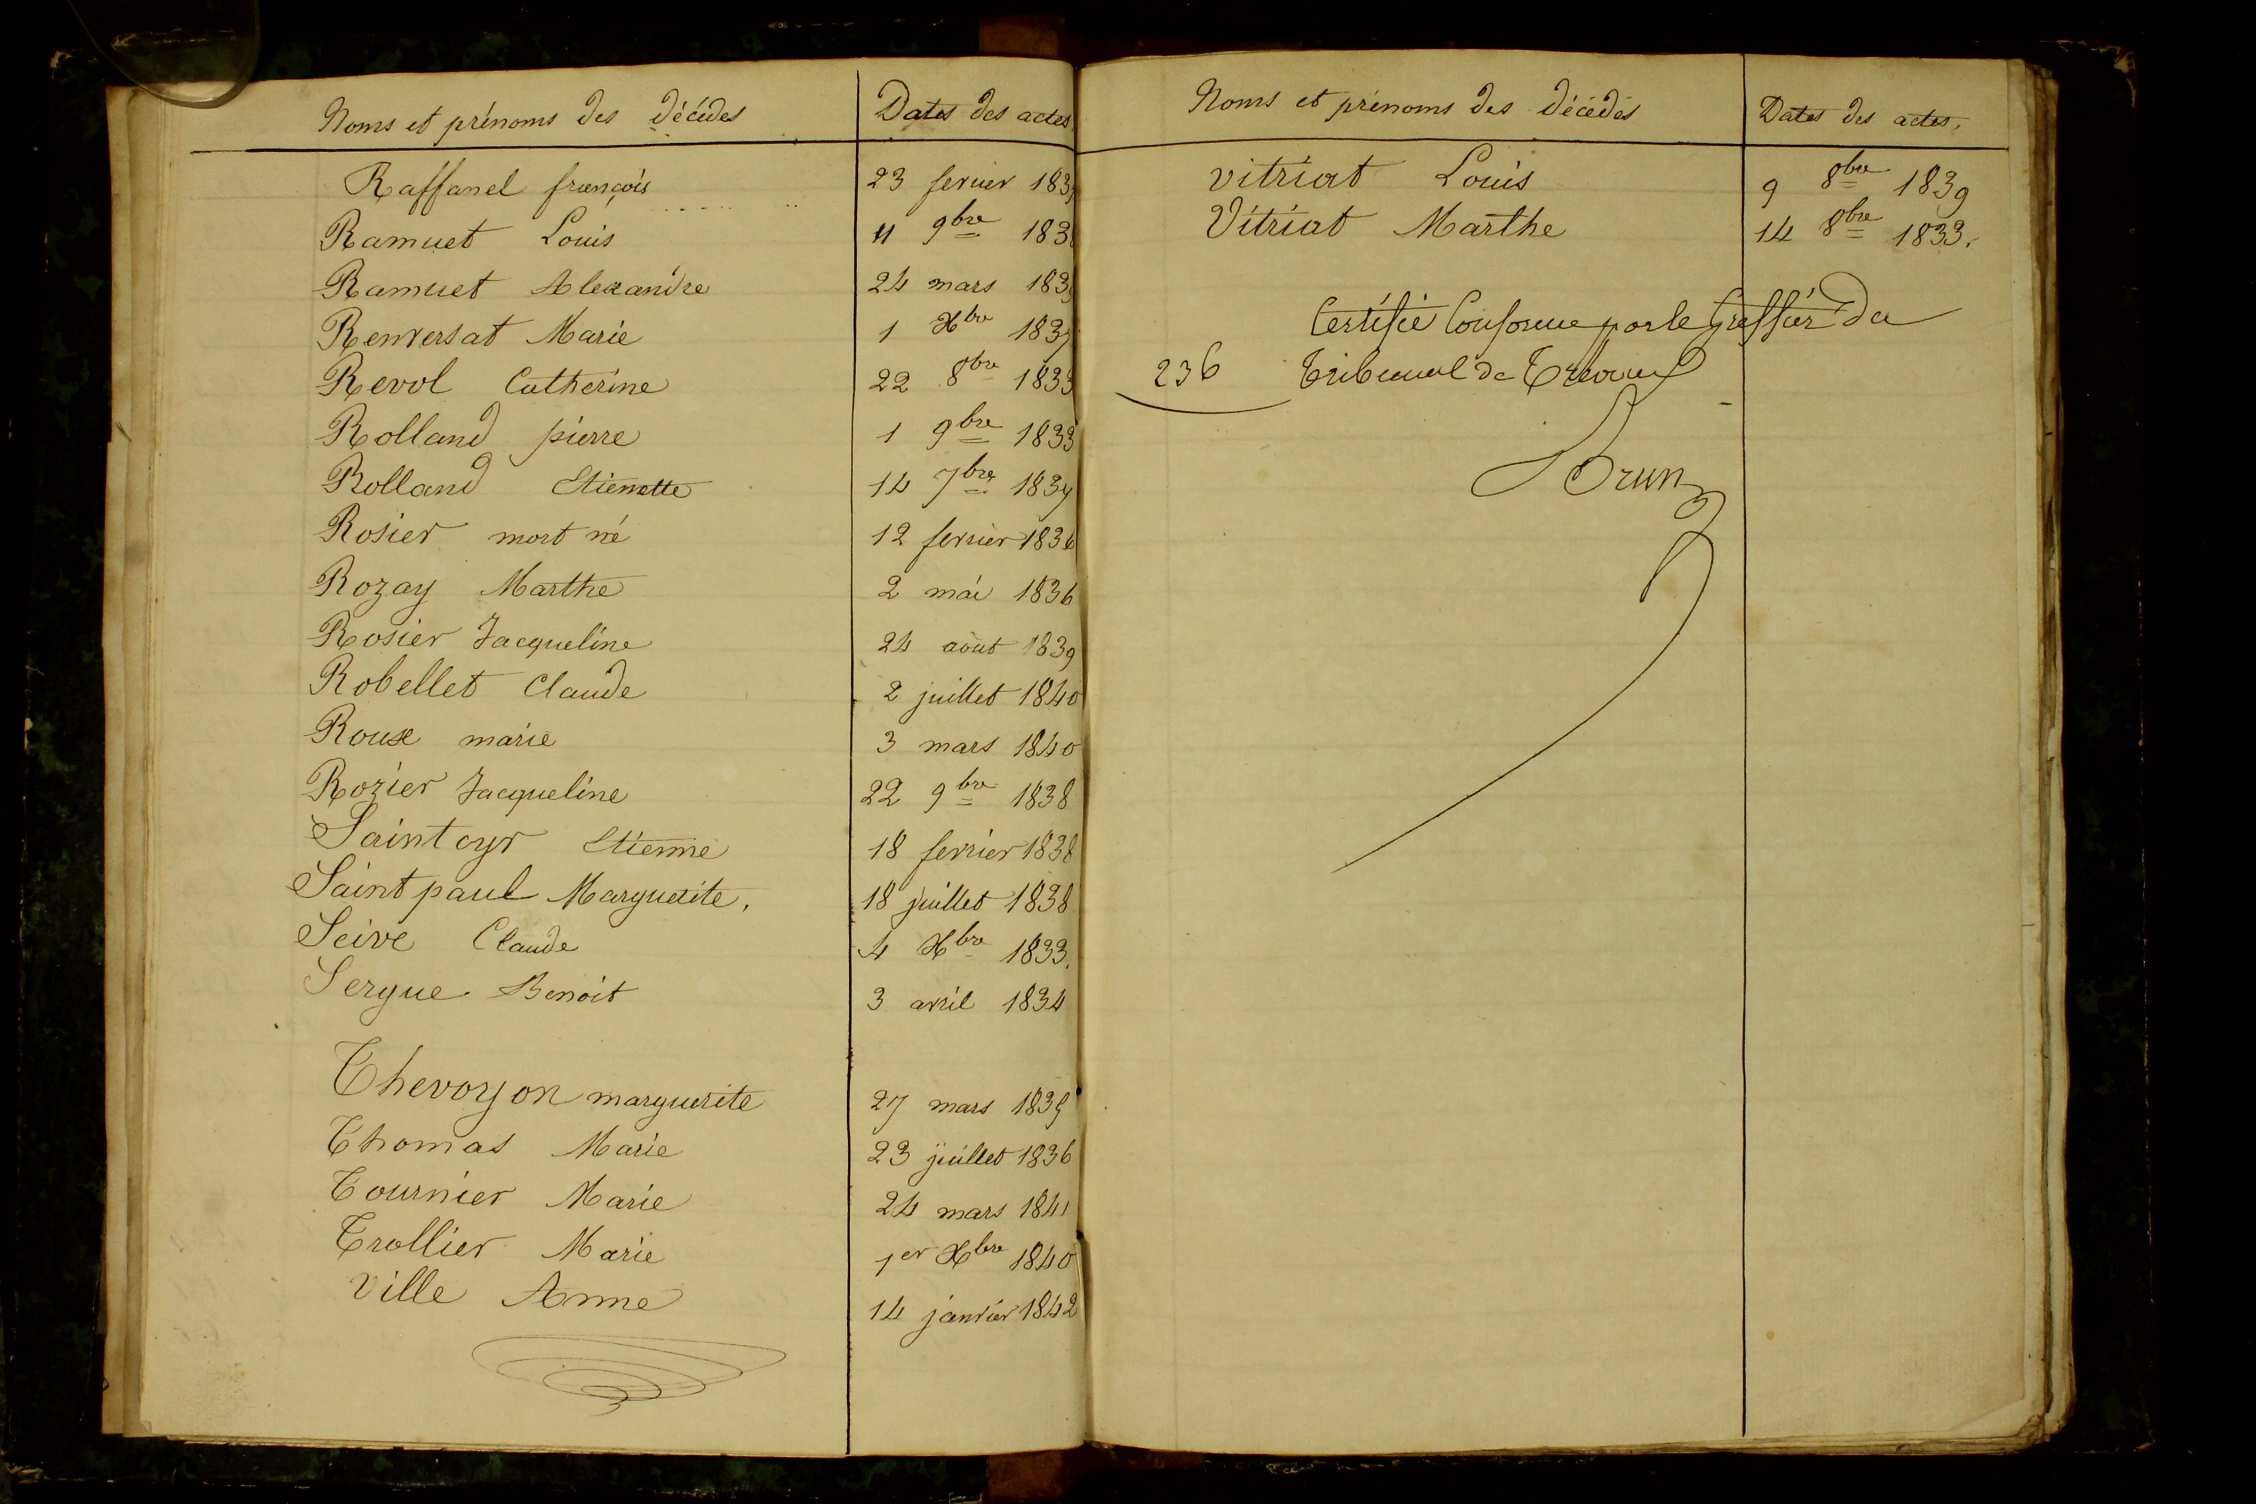 Noms et prénoms des décédés Dates des actes
Raffanel françois 23 fevrier 183
Ramuet Louis 11 9bre 183
Ramuet Alexandre 24 mars 183
Renversat Marie 1 Xbre 183
Revol Catherine 22 8bre 1833
Rolland pierre 1 9bre 1833
Rolland Etiennette 14 7bre
Rosier mort né 12 fevrier 1836
Rozay Marthe 2 mai 1836
Rosier Jacqueline 24 août 1839
Robellet Claude 2 juillet 1840
Roux marie 3 mars 1840
Rozier Jacqueline 22 9bre 1838
Saint cyr Etienne 18 fevrier 1838
Saint paul Marguerite, 18 juillet 1838
Seive Claude 4 Xbre 1833.
Sergue Benoit 3 avril 1834
Thevoyon marguerite 27 mars 1835
Thomas Marie 23 juillet 1836
Tournier Marie 24 mars 1841
Trollier Marie 1er Xbre 1840
Ville Anne 14 janvier 1842
Noms et prénoms des décédés Dates des actes,
vitriat Louis 9 8bre 1839
Vitriat Marthe 14 8bre 1833.
Certifié Conforme par le Greffier du
236 Tribunal de Trévoux
Brun